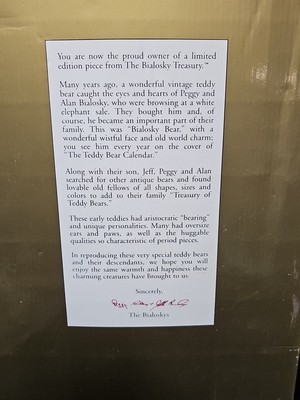 You are now the proud owner of a limited
edition piece from The Bialosky Treasury.™
Many years ago, a wonderful vintage teddy
bear caught the eyes and hearts of Peggy and
Alan Bialosky, who were browsing at a white
elephant sale. They bought him and, of
course, he became an important part of their
family. This was "Bialosky Bear," with a
wonderful wistful face and old world charm;
you see him every year on the cover of
"The Teddy Bear Calendar."
Along with their son, Jeff, Peggy and Alan
searched for other antique bears and found
lovable old fellows of all shapes, sizes and
colors to add to their family "Treasury of
Teddy Bears."
These early teddies had aristocratic "bearing"
and unique personalities. Many had oversize
ears and paws, as well as the huggable
qualities so characteristic of period pieces.
In reproducing these very special teddy bears
and their descendants, we hope you will
enjoy the same warmth and happiness these
charming creatures have brought to us.
Sincerely,
The Bialoskys